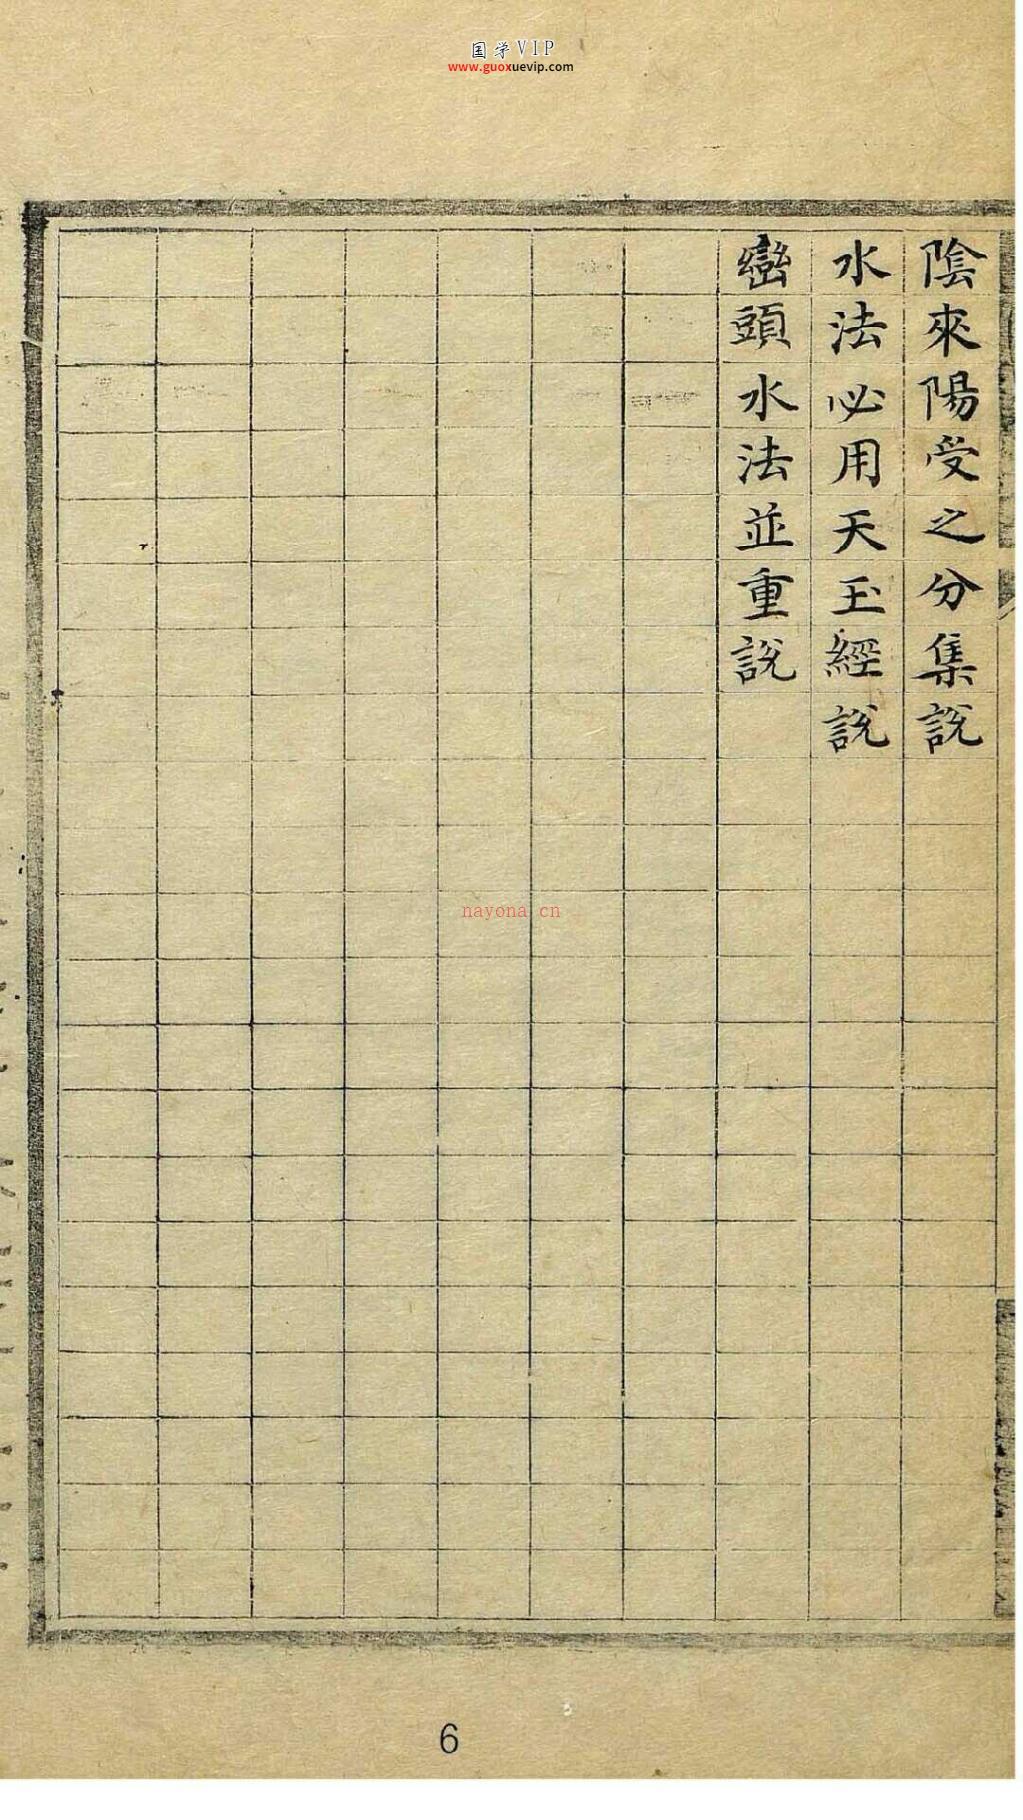 国学VIP
www.guoxuevip.com
陰來陽受之分集說
水法必用天玉經說
巒頭水法並重說
nayona cn
6